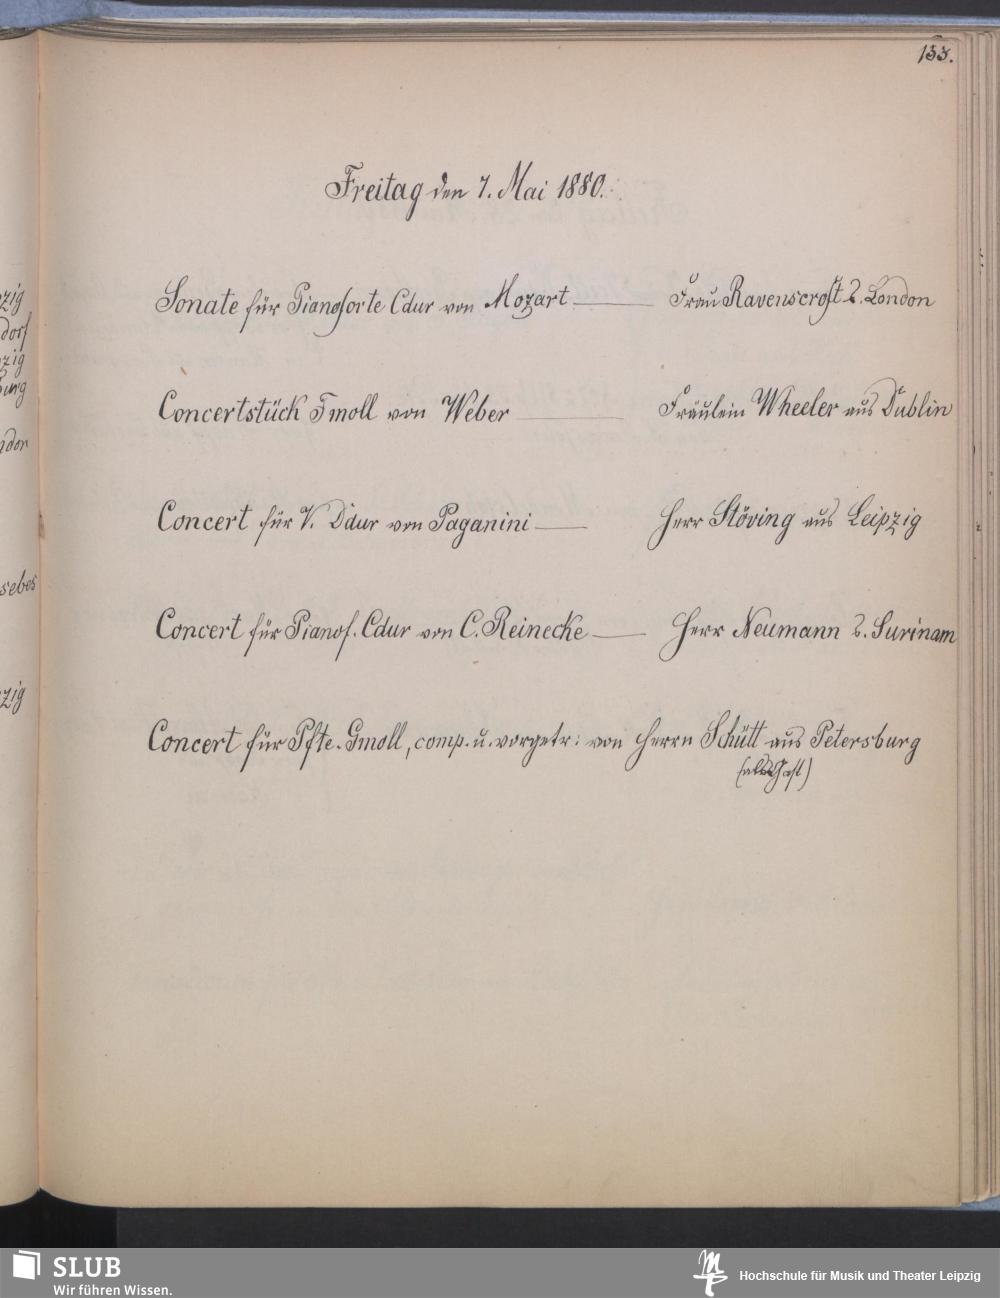 133.
Freitag den 7. Mai 1880.
Sonate für Pianoforte Cdur von Mozart — Frau Ravenscroft a. London
Concertstück Fmoll von Weber — Fräulein Wheeler aus Dublin
Concert für V. Ddur von Paganini — Herr Stöving aus Leipzig
Concert für Pianof. Cdur von C. Reinecke — Herr Neumann a. Surinam
Concert für Pfte. Gmoll, comp. u. vorgetr: von Herrn Schütt aus Petersburg
(als Gast)
zig
dorf
zig
burg
ndon
sebes
zig
SLUB
Wir führen Wissen.
Hochschule für Musik und Theater Leipzig